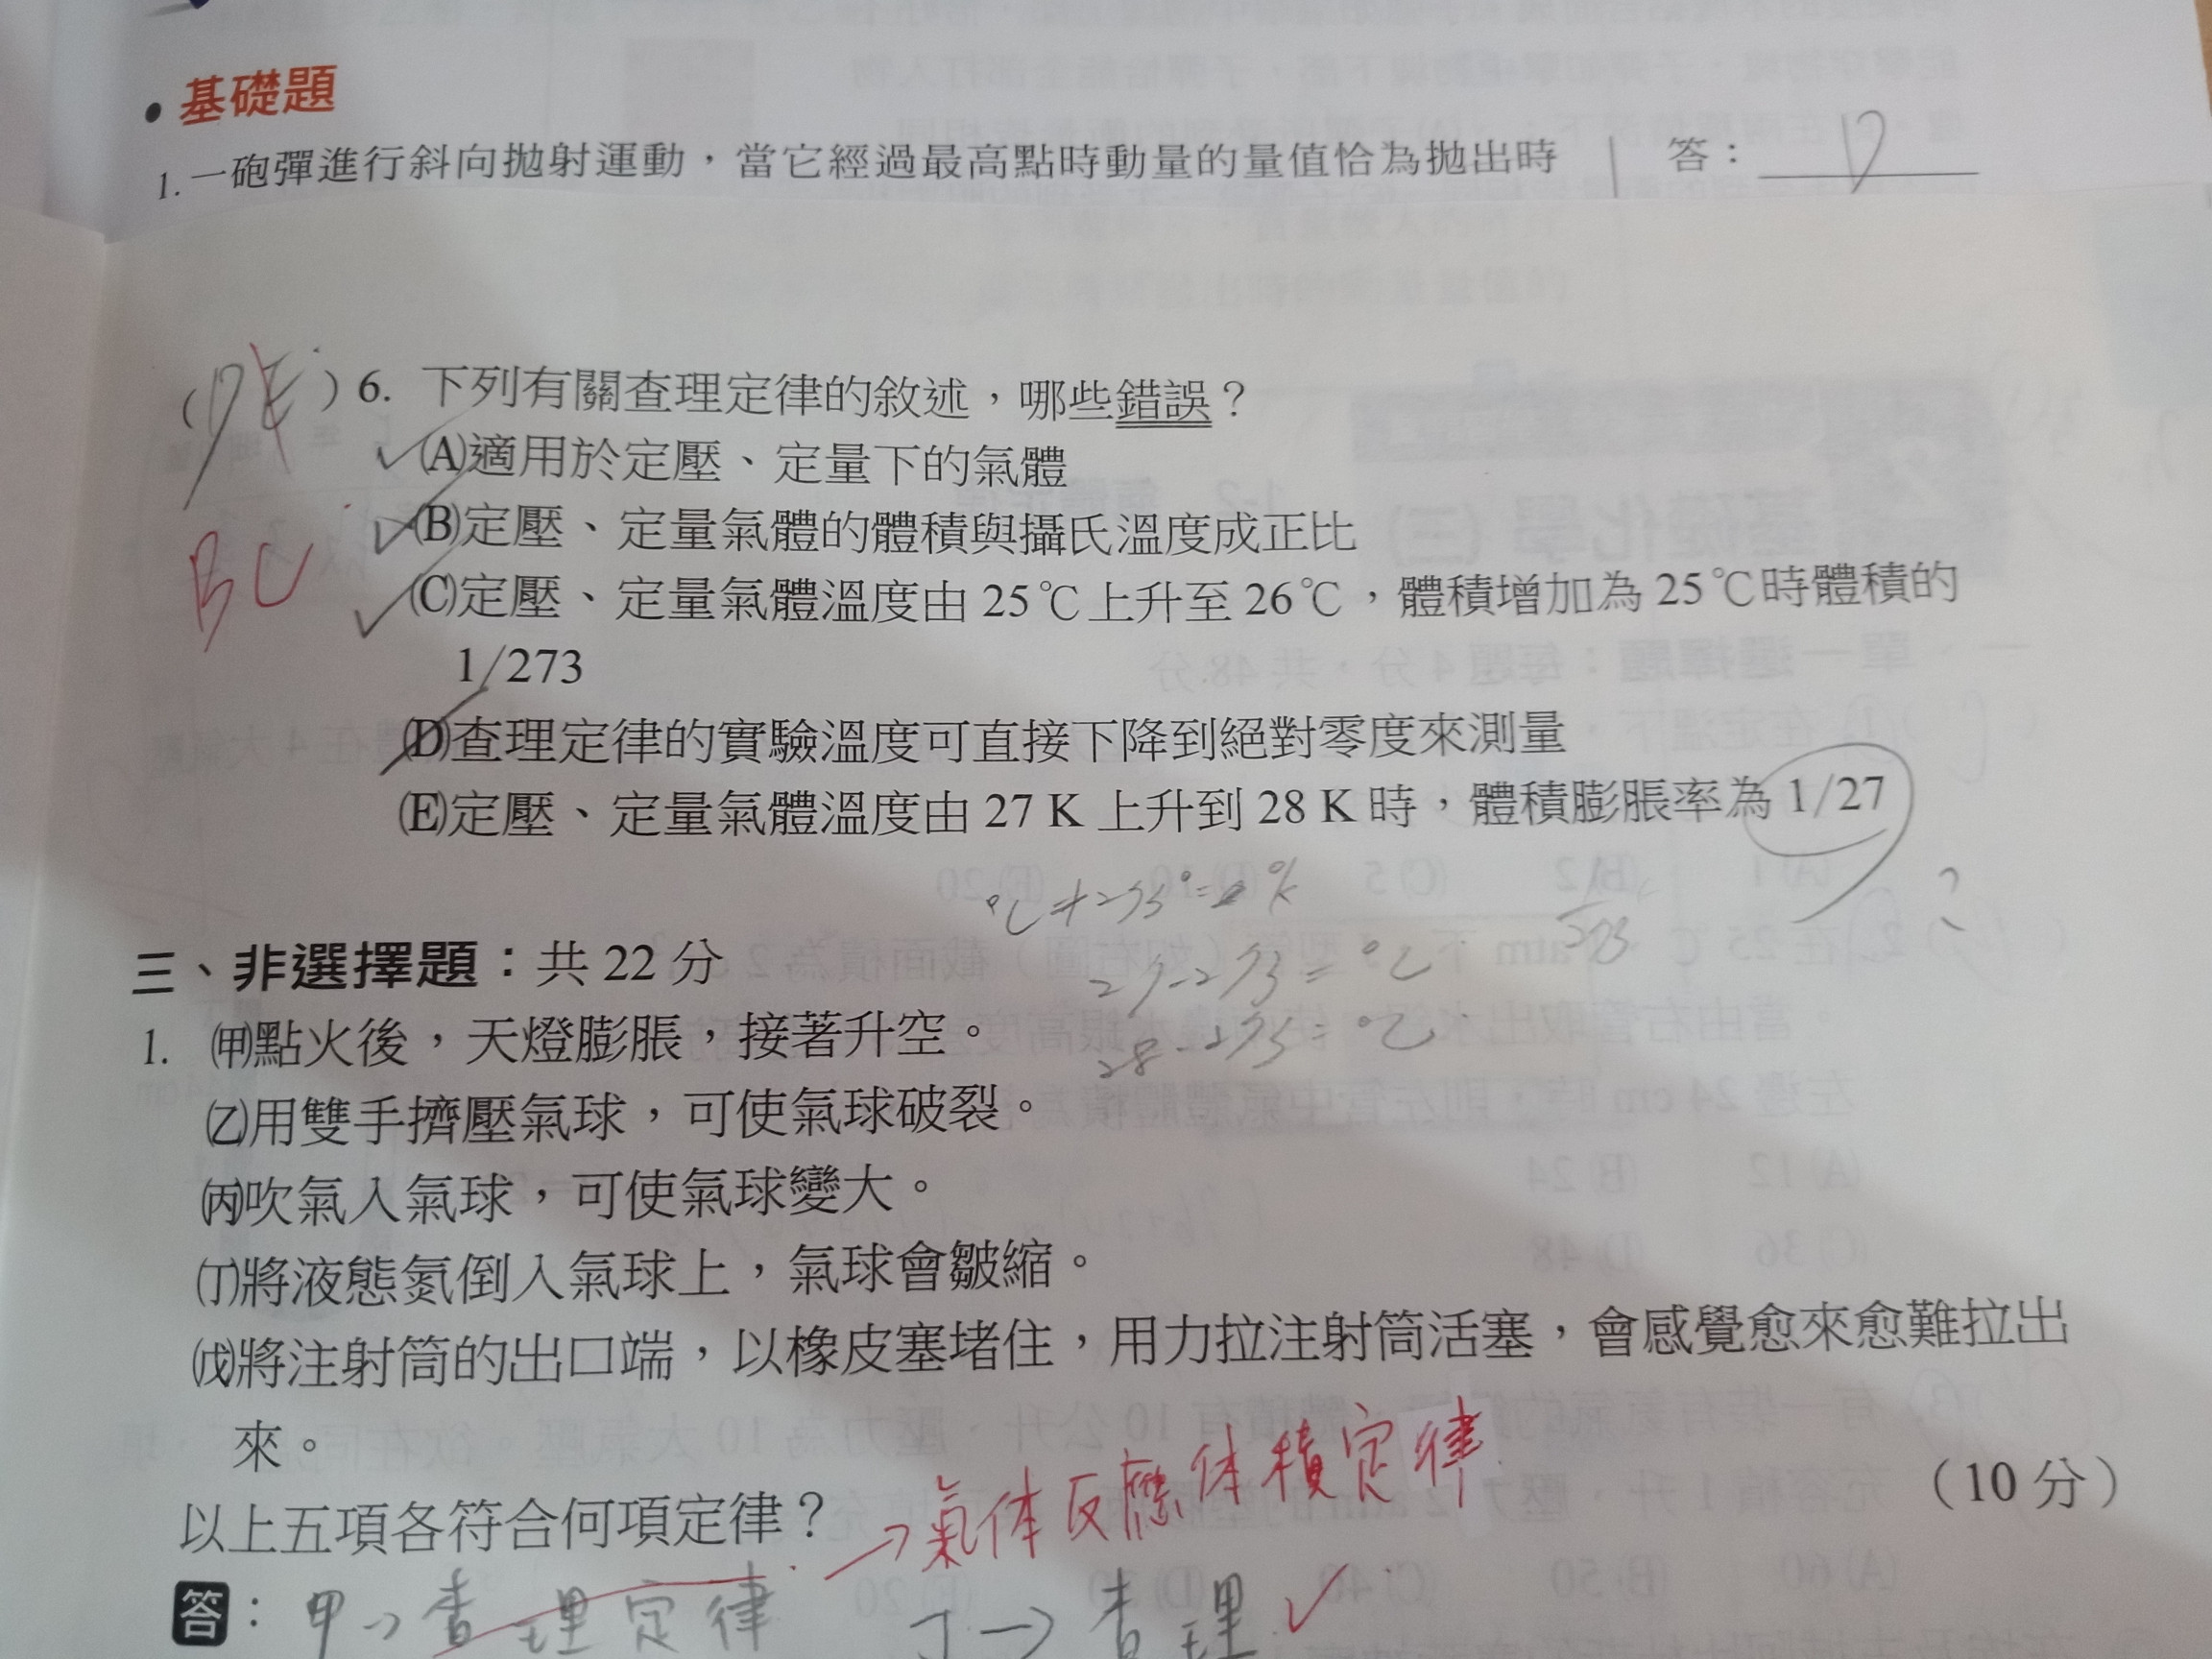 • 基礎題
1. 一砲彈進行斜向拋射運動，當它經過最高點時動量的量值恰為拋出時 答：D
(DE) 6. 下列有關查理定律的敘述，哪些錯誤？
(A)適用於定壓、定量下的氣體
(B)定壓、定量氣體的體積與攝氏溫度成正比
BC
(C)定壓、定量氣體溫度由 25℃上升至 26℃，體積增加為 25℃時體積的
1/273
(D)查理定律的實驗溫度可直接下降到絕對零度來測量
(E)定壓、定量氣體溫度由 27 K 上升到 28 K 時，體積膨脹率為 1/27
?
27-273=℃
三、非選擇題：共 22 分
28-273=℃
1. (甲)點火後，天燈膨脹，接著升空。
(乙)用雙手擠壓氣球，可使氣球破裂。
(丙)吹氣入氣球，可使氣球變大。
(丁)將液態氮倒入氣球上，氣球會皺縮。
(戊)將注射筒的出口端，以橡皮塞堵住，用力拉注射筒活塞，會感覺愈來愈難拉出
來。
以上五項各符合何項定律？ （10 分）
→氣体反應体積定律
答：甲→查理定律 丁→查理